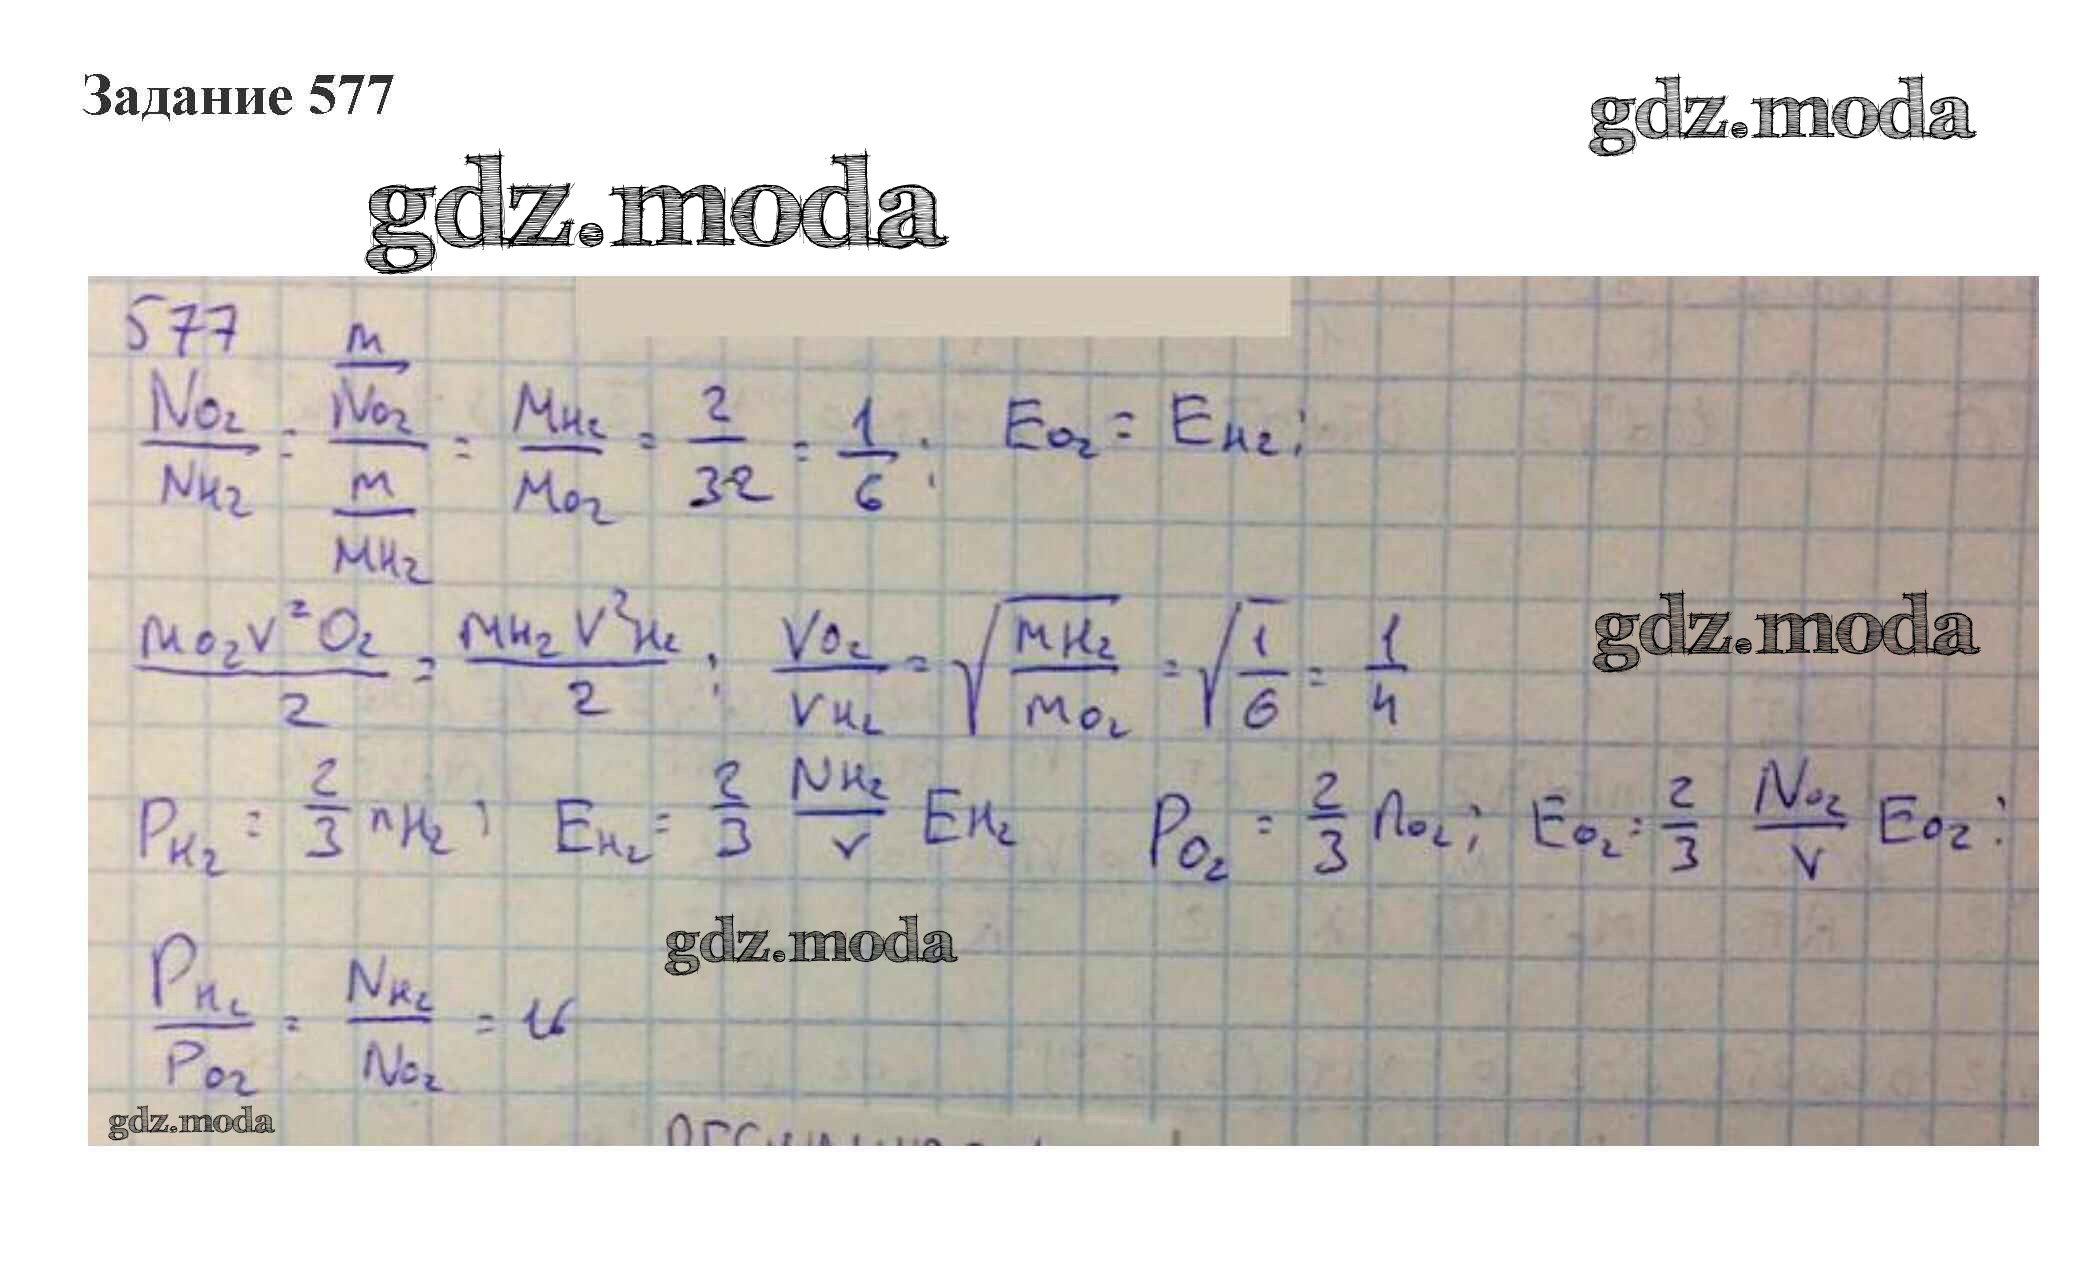 Задание 577
gdz.moda
gdz.moda
577
N_{O2}/N_{H2} = (m/N_{O2})/(m/M_{H2}) = M_{H2}/M_{O2} = 2/32 = 1/6 ; E_{O2} = E_{H2};
m_{O2}V²_{O2}/2 = m_{H2}V²_{H2}/2 ; V_{O2}/V_{H2} = √(m_{H2}/m_{O2}) = √(1/6) = 1/4
gdz.moda
P_{H2} = 2/3 n_{H2}; E_{H2} = 2/3 N_{H2}/V E_{H2} P_{O2} = 2/3 n_{O2}; E_{O2} = 2/3 N_{O2}/V E_{O2};
gdz.moda
P_{H2}/P_{O2} = N_{H2}/N_{O2} = 16
gdz.moda